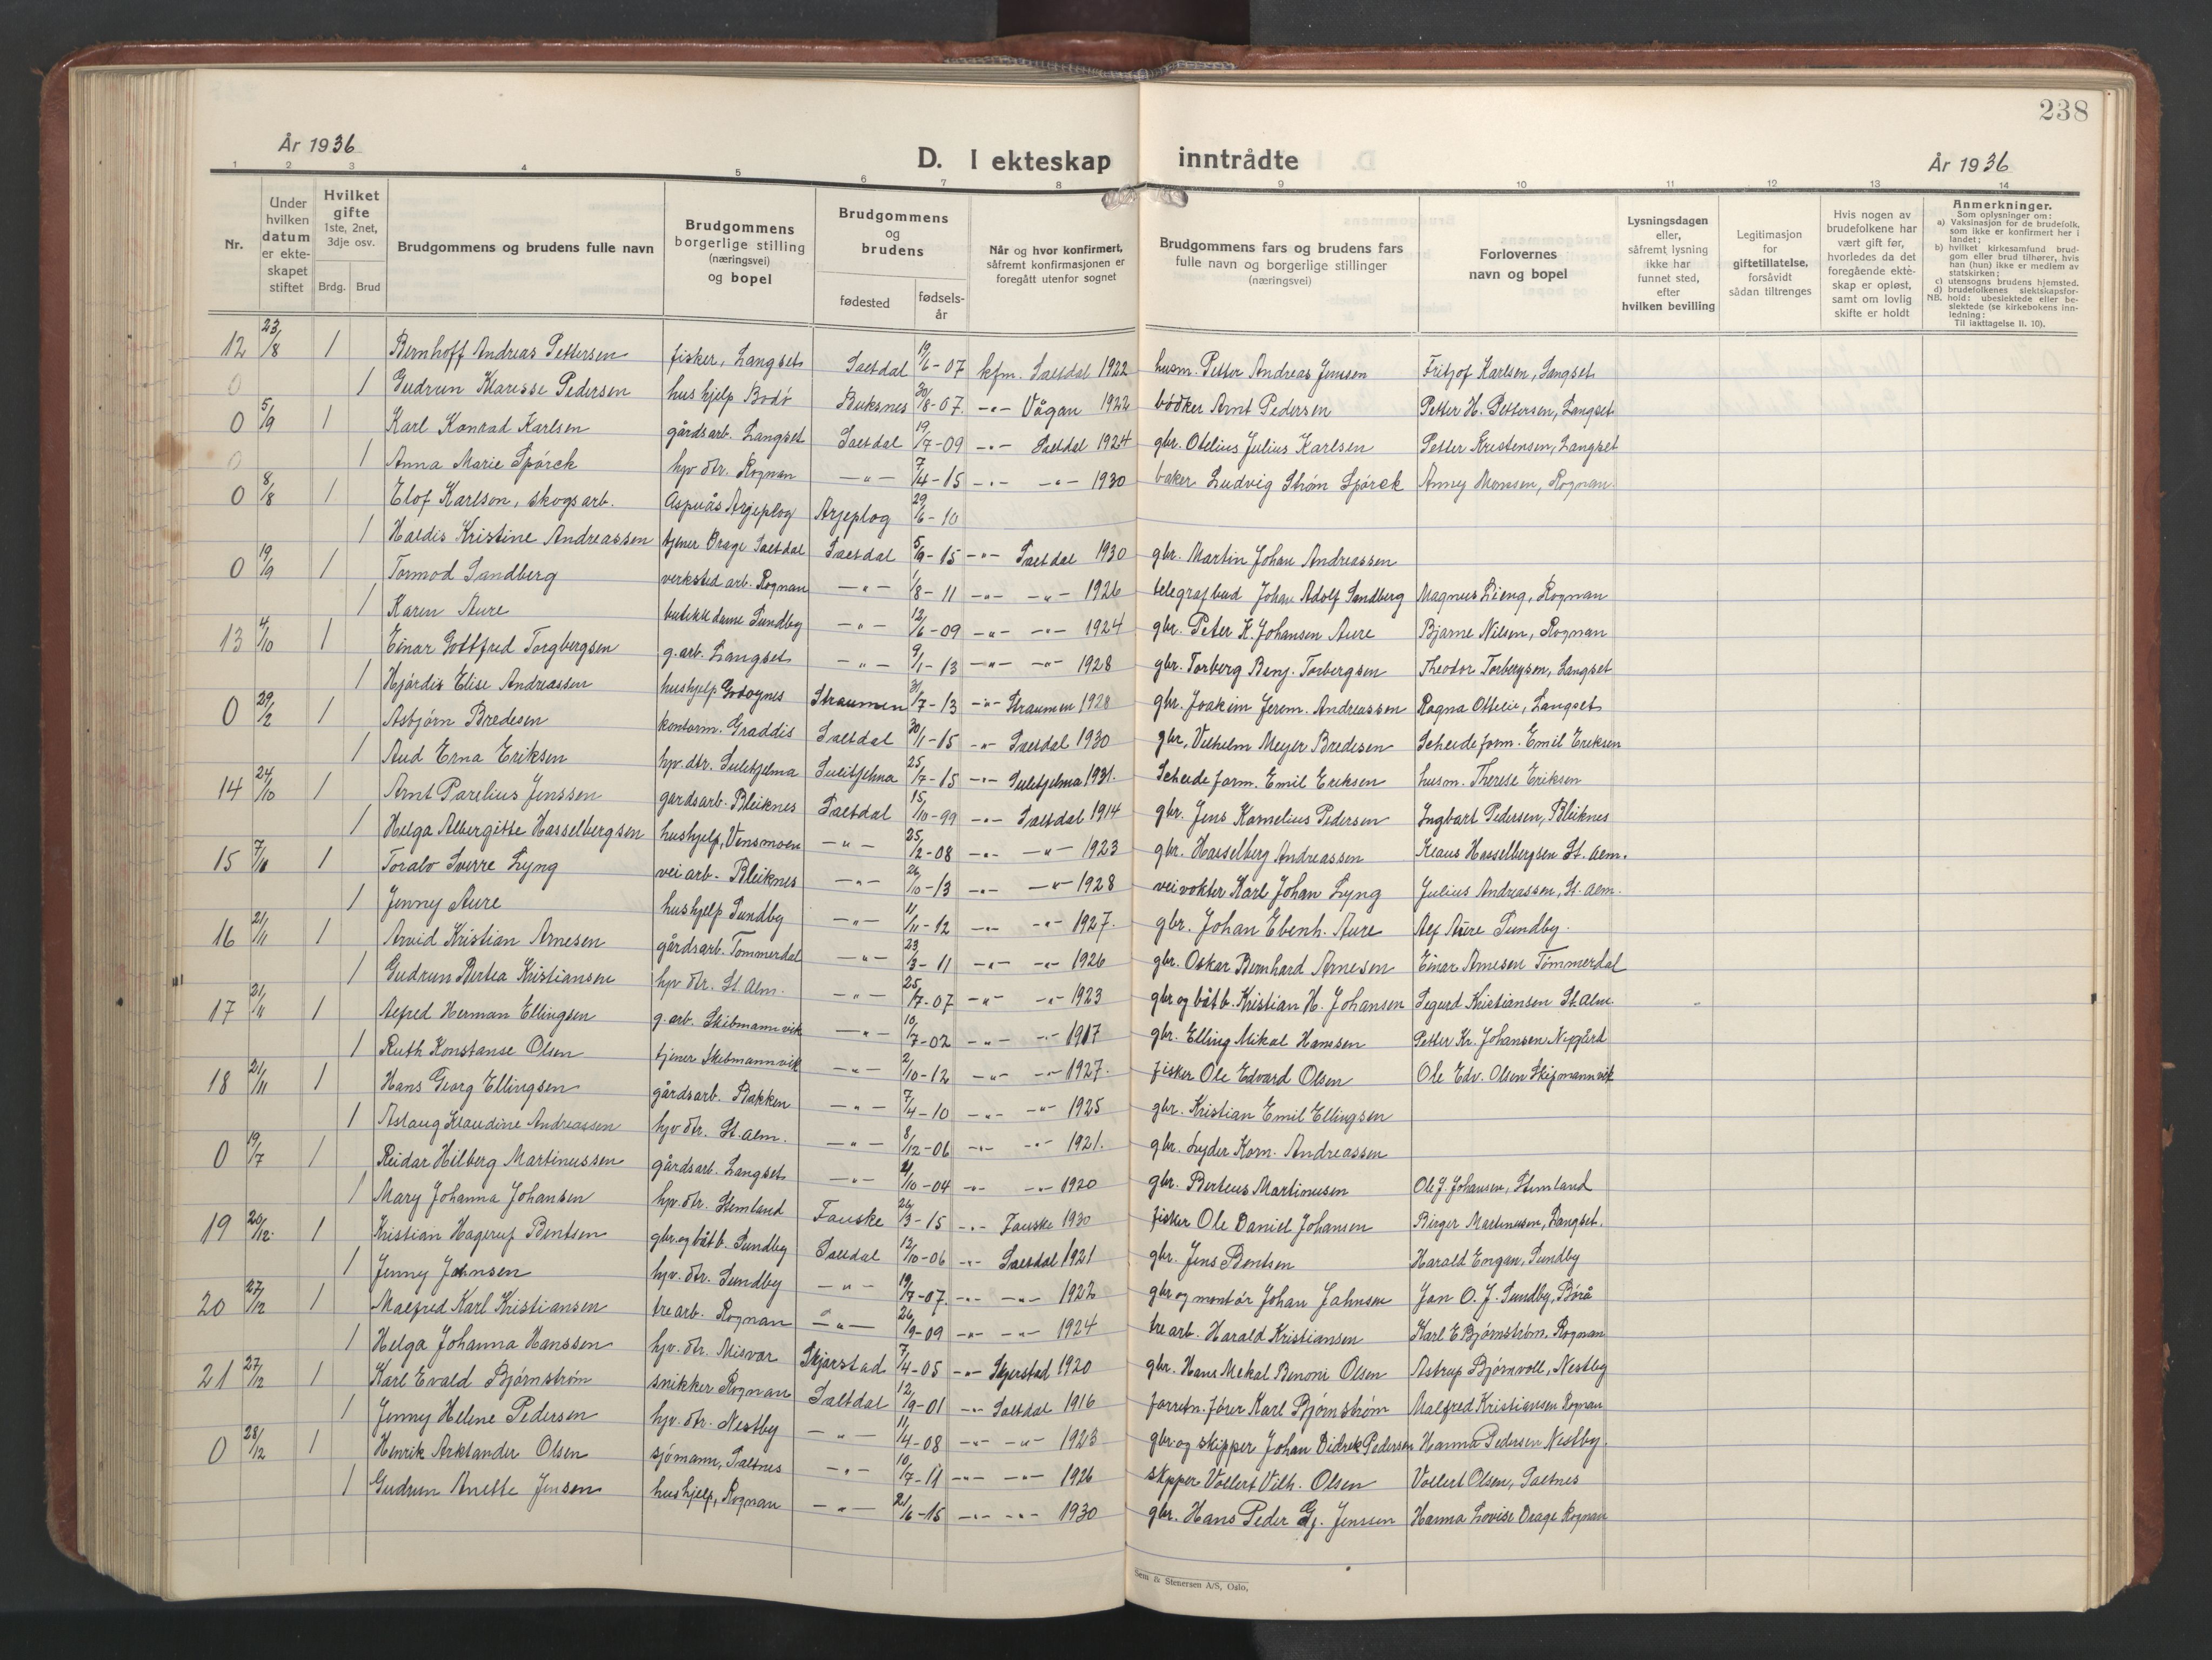 238
År 1936
D. I ekteskap inntrådte
År 1936
1 2 3 4 5 6 7 8 9 10 11 12 13 14
Nr.
Under hvilken datum er ekteskapet stiftet
Hvilket gifte 1ste, 2net, 3dje osv.
Brdg. Brud
Brudgommens og brudens fulle navn
Brudgommens borgerlige stilling (næringsvei) og bopel
Brudgommens og brudens
fødested
fødsels-år
Når og hvor konfirmert, såfremt konfirmasjonen er foregått utenfor sognet
Brudgommens fars og brudens fars fulle navn og borgerlige stillinger (næringsvei)
Forlovernes navn og bopel
Lysningsdagen eller, såfremt lysning ikke har funnet sted, efter hvilken bevilling
Legitimasjon for giftetillatelse, forsåvidt sådan tiltrenges
Hvis nogen av brudefolkene har vært gift før, hvorledes da det foregående ekteskap er opløst, samt om lovlig skifte er holdt
Anmerkninger.
Som oplysninger om:
a) Vaksinasjon for de brudefolk, som ikke er konfirmert her i landet;
b) hvilket kirkesamfund brudgom eller brud tilhører, hvis han (hun) ikke er medlem av statskirken;
c) utensogns brudens hjemsted.
d) brudefolkenes slektskapsforhold: ubeslektede eller beslektede (se kirkebokens innledning:
NB. Til iakttagelse II. 10).
12 23/8 1 Bernhoff Andreas Pettersen fisker, Langset Saltdal 19/6-07 kfm. Saltdal 1922 husm. Petter Andreas Jenssen Fritjof Karlsen, Langset
0 1 Gudrun Klarisse Pedersen hushjelp Bodö Buksnes 30/8-07 -"- Vågan 1922 bödker Arnt Pedersen Petter H. Pettersen, Langset
0 5/9 1 Karl Konrad Karlsen gårdsarb. Langset Saltdal 19/7-09 -"- Saltdal 1924 gbr. Otelius Julius Karlsen Petter Kristensen, Langset
0 1 Anna Marie Spörck hjv dtr. Rognan -"- 7/4-15 -"- -"- 1930 baker Ludvig Ström Spörck Anny Monsen, Rognan
0 8/8 1 Elof Karlson, skogsarb. Aspnäs Arjeplog Arjeplog 29/6-10
1 Haldis Kristine Andreassen tjener Drage Saltdal Saltdal 5/9-15 -"- Saltdal 1930 gbr. Martin Johan Andreassen
0 19/9 1 Tormod Sandberg verksted arb. Rognan -"- 1/8-11 -"- -"- 1926 telegrafbud Johan Adolf Sandberg Magnus Lieng, Rognan
1 Karen Aure butikkdame Sundby -"- 12/6-09 -"- -"- 1924 gbr. Peter K. Johansen Aure Bjarne Nilsen, Rognan
13 4/10 1 Einar Gottfred Torgbergsen g.arb. Langset -"- 9/1-13 -"- -"- 1928 gbr. Torberg Benj. Torbergsen Theodor Torbergsen, Langset
1 Hjördis Elise Andreassen hushjelp Godøynes Straumen 31/7-13 -"- Straumen 1928 gbr. Joakim Jerem. Andreassen Ragna Ottelie, Langset
0 29/2 1 Asbjörn Bredesen kontorm. Graddis Saltdal 30/1-15 -"- Saltdal 1930 gbr. Vilhelm Meyer Bredesen Scheideform. Emil Eriksen
1 Aud Erna Eriksen hjv. dtr. Sulitjelma Sulitjelma 25/7-15 -"- Sulitjelma 1931. Scheide form. Emil Eriksen husm. Therese Eriksen
14 24/10 1 Arnt Parelius Jenssen gardsarb. Bleiknes Saltdal 15/10-99 -"- Saltdal 1914 gbr. Jens Kornelius Pedersen Ingbart Pedersen, Bleiknes
1 Helga Albergitte Hasselbergsen hushjelp, Vensmoen -"- 25/2-08 -"- -"- 1923 gbr. Hasselberg Andreassen Klaus Hasselbergsen St. Alm.
15 7/11 1 Toralv Sverre Lyng veiarb. Bleiknes -"- 26/10-13 -"- -"- 1928 veivokter Karl Johan Lyng Julius Andreassen, St. Alm.
1 Jenny Aure hushjelp Sundby -"- 11/11-12 -"- -"- 1927. gbr. Johan Ebenh. Aure Alf Aure Sundby.
16 21/11 1 Arvid Kristian Arnesen gårdsarb. Tömmerdal -"- 23/3-11 -"- -"- 1926 gbr. Oskar Bernhard Arnesen Einar Arnesen Tömmerdal
1 Gudrun Bertea Kristiansen hjv dtr. St. Alm. -"- 25/7-07 -"- -"- 1923 gbr og båtb. Kristian H. Johansen Sigurd Kristiansen St. Alm.
17 21/11 1 Alfred Herman Ellingsen g. arb. Skibmannvik -"- 10/7-02 -"- -"- 1917 gbr. Elling Mikal Hansen Petter Kr. Johansen Nygård
1 Ruth Konstanse Olsen tjener Skibmannvik -"- 2/10-12 -"- -"- 1927. fisker Ole Edvard Olsen Ole Edv. Olsen Skipmannvik
18 21/11 1 Hans Georg Ellingsen gårdsarb. Bakken -"- 7/4-10 -"- -"- 1925 gbr. Kristian Emil Ellingsen
1 Aslaug Klaudine Andreassen hjv dtr. St. Alm. -"- 8/12-06 -"- -"- 1921. gbr. Lyder Korn. Andreassen
0 19/7 1 Reidar Hilberg Martinussen gårdsarb. Langset -"- 21/10-04 -"- -"- 1920 gbr. Berteus Martinusen Ole J. Johansen, Stemland
1 Mary Johanna Johansen hjv. dtr. Stemland Fauske 26/3-15 -"- Fauske 1930 fisker Ole Daniel Johansen Birger Martinusen, Langset.
19 20/12. 1 Kristian Hagerup Bentsen gbr. og båtb. Sundby Saltdal 12/10-06 -"- Saltdal 1921 gbr. Jens Bentsen Harald Engan, Sundby
1 Jenny Jahnsen hjv. dtr. Sundby -"- 19/7-07. -"- -"- 1922 gbr og montör Johan Jahnsen Jan O. J. Sundby, Borå
20 27/12 1 Malfred Karl Kristiansen trearb. Rognan -"- 26/9-09 -"- -"- 1924 trearb. Harald Kristiansen Karl E Bjørnström, Rognan
1 Helga Johanna Hanssen hjv. dtr. Misvær Skjerstad 7/4-05 -"- Skjerstad 1920 gbr. Hans Mekal Benoni Olsen Astrup Bjørnvoll, Nestby
21 27/12 1 Karl Evald Bjørnström snikker Rognan Saltdal 12/9-01 -"- Saltdal 1916 forretn.förer Karl Bjørnström Malfred Kristiansen Rognan
1 Jenny Helene Pedersen hjv. dtr. Nestby -"- 11/4-08 -"- -"- 1923 gbr og skipper Johan Didrik Pedersen Hanna Pedersen Nestby.
0 28/12 1 Henrik Arktander Olsen sjömann, Saltnes -"- 10/7-11 -"- -"- 1926 skipper Vollert Vilh. Olsen Vollert Olsen, Saltnes
1 Gudrun Anette Jensen hushjelp, Rognan -"- 21/6-15 -"- -"- 1930 gbr. Hans Peder Gj. Jenssen Hanna Lovise Drage Rognan
Sem & Stenersen A/S, Oslo.